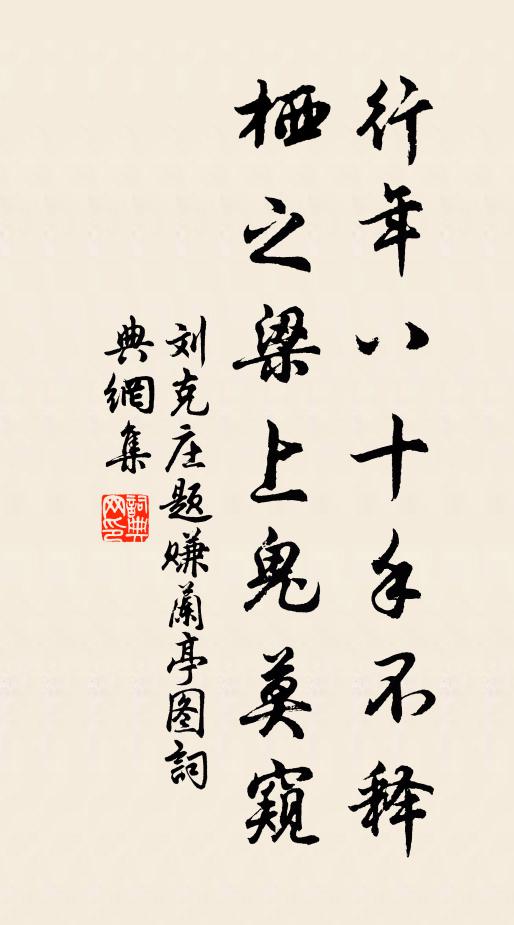 行年八十手不释
栖之梁上鬼莫窺
刘克庄题赚蘭亭图詞
典網集
詞典
网印